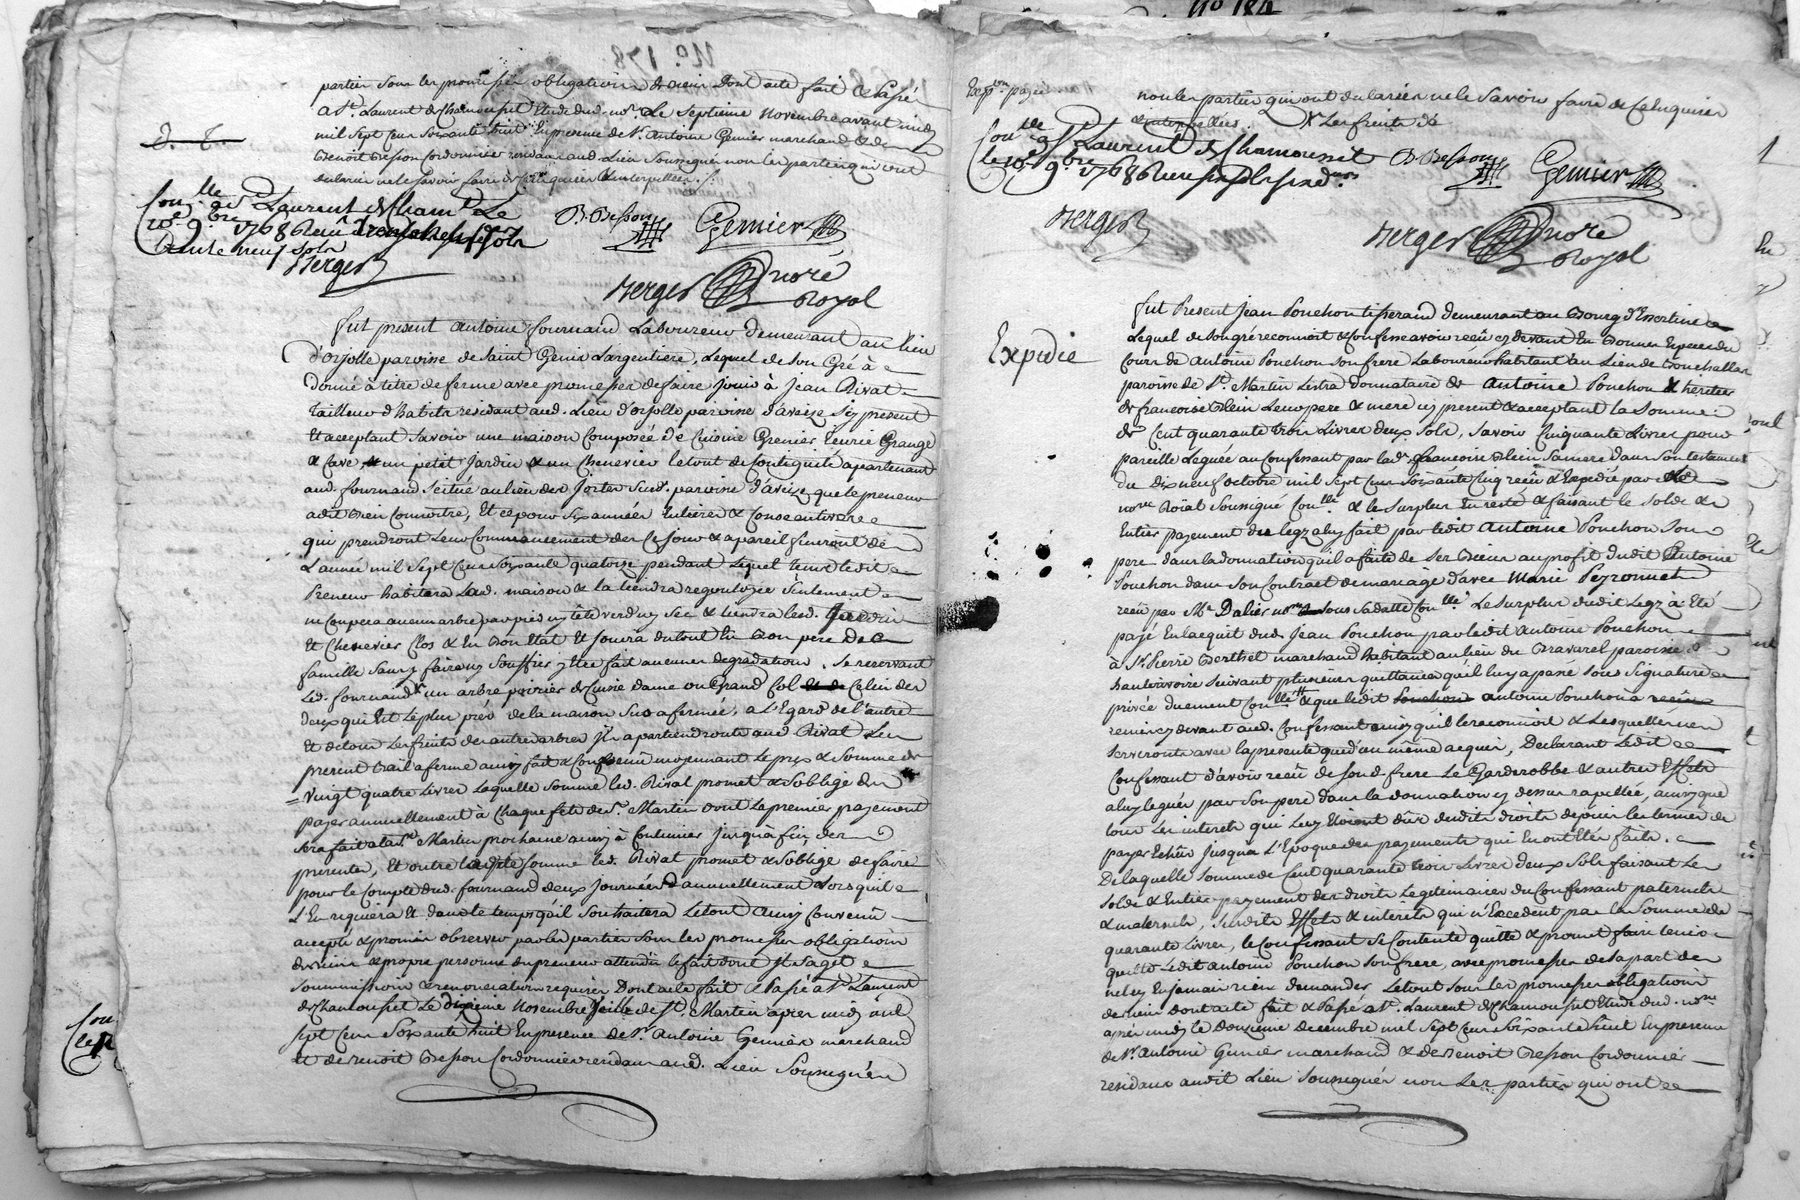 No. 178
parties sous les promesses obligations de biens Dont acte fait & Passé
a St. Laurent de Chamousset Etude dud. no.re Le Septieme Novembre avant midy
mil sept cens soixante huit En presence de Sr. Antoine Gemier marchand & de
Benoit Besson Cordonnier residans aud. Lieu Soussignés non les parties qui ont
declaré ne le savoir faire de ce requises & interpellées ./.
Con.lle a St. Laurent de Cham.t Le
10e 9bre 1768 Receu
trente neuf sols
Berger
B. Besson Gemier
Berger Noré
Royal
Fut present Antoine fournand Laboureur demeurant au lieu
d'orjolle paroisse de Saint Genis Largentiere, Lequel de son Gré à
donné à titre de ferme avec promesses de faire jouir à Jean Rivat
Tailleur d'habits residant aud. Lieu d'orjolle paroisse d'aveize icy present
Et acceptant savoir une maison Composée de Cuisine Grenier Ecurie Grange
& Cave, & un petit Jardin & un Chenevier le tout de Contiguité apartenant
aud. fournand scitué au lieu des Jortes susd. paroisse d'aveize que le preneur
a dit bien Connoitre, Et ce pour six années Entieres & Consecutives
qui prendront Leur Commencement des ce jour & a pareil finiront de
L'année mil sept cens soixante quatorze pendant Lequel tems ledit
Preneur habitera Lad. maison & la tiendra regouloyée seulement
ne Coupera aucun arbre par pied ny tête verd ny sec & tiendra led. Jardin
Et Chenevier Clos & En bon Etat Et jouira du tout En bon pere de
famille sans y faire ny souffrir y être fait aucunes degradations, se reservant
Led. fournand un arbre poirier de Cuisse dame ou Grand Col Celui des
deux qui Est le plus près de la maison sus affermée, a L'Egard de l'autre
Et de tous Les fruits des autres arbres Ils apartiendront aud. Rivat Le
present bail a ferme ainsy fait & Convenu moyennant Le prix & Somme de
Vingt quatre Livres Laquelle somme led. Rivat promet & s'oblige de
payer annuellement à Chaque fête de St. Martin dont Le premier payement
sera fait a la St. Martin prochaine ainsy à Continuer jusqu'à fin des
presentes, Et outre ladite somme led. Rivat promet & s'oblige de faire
pour le Compte dud. fournand deux journées annuellement Lorsqu'il
L'En requiera Et dans le temps qu'il souhaitera Le tout Ainsy Convenu
accepté & promis observer par les parties sous les promesses obligations
de biens & propre personne du preneur attendu le fait dont Il s'agit
soummissions & renonciations requises Dont acte fait & Passé a St. Laurent
de Chamousset Le dixieme Novembre Veille de St. Martin apres midy mil
sept cens soixante huit En presence de Sr. Antoine Gemier marchand
Et de benoit Besson Cordonnier residans aud. Lieu Soussignés
No 184
non les parties qui ont declaré ne le Savoir faire de ce requises
& interpellées. Les fruits de
Con.lle a St. Laurent de Chamousset
B. Besson Gemier
Berger
Berger Noré
Royal
Expedié
Fut Present Jean Ponchon tisserand demeurant au Bourg d'Essertine
Lequel de son gré reconnoit & Confesse avoir reçû cy devant En bonnes Especes du
Cours de Antoine Ponchon son frere Laboureur habitant au Lieu de tronchallas
paroisse de St. Martin Lestra donnataire de Antoine Ponchon & heritier
de francoise Blein Leurs pere & mere icy present & acceptant La Somme
de Cent quarante trois Livres deux sols, savoir Cinquante Livres pour
pareille Leguée au Confessant par lad. francoise Blein sa mere dans son testament
du Dix neuf octobre mil sept cens soixante Cinq reçû & Expedié par
no.re Roïal Soussigné Con.llé & le surplus En reste & faisant le solde &
Entier payement du legz a luy fait par ledit Antoine Ponchon son
pere dans la donnation qu'il a faite de ses Biens au profit dudit Antoine
Ponchon dans son Contract de mariage d'avec Marie Peyronnet
reçû par Me. Dalier no.re sous sa datte Con.llé Le surplus dudit Legz à Eté
payé En l'acquit dud. Jean Ponchon par ledit Antoine Ponchon
à Sr. Pierre Berthet marchand habitant au lieu du Bravard paroisse
hauterivoire suivant plusieurs quittances qu'il luy a passé sous signature
privée duement Con.llées & que ledit antoine Ponchon a
remis cy devant aud. Confessant ainsy qu'il le reconnoit & Lesquelles ne
serviront avec la presente que d'un même acquit, Declarant Ledit
Confessant d'avoir reçû de sond. frere Le Garderobbe & autres Effets
a luy legués par son pere dans la donnation cy dessus rapellée, ainsy que
tous Les interets qui Luy Etoient dûs desdits droits depuis les termes de
payer Echus jusqu'à L'Epoque des payements qui En ont Eté faits.
De laquelle Somme de Cent quarante trois Livres deux Sols faisant Le
solde & Entier payement des droits Legitimaires du Confessant paternels
& maternels, susdits Effets & interets qui n'Excedent pas La Somme de
quarante Livres, le Confessant se Contente quitte & promet faire tenir
quitte Ledit antoine Ponchon son frere, avec promesses de sa part de
ne luy En jamais rien demander Le tout sous les promesses obligations
de biens dont acte fait & Passé a St. Laurent de Chamousset Etude dud. no.re
apres midy le Douzieme decembre mil sept cens soixante huit En presence
de Sr. Antoine Gemier marchand & de Benoit Besson Cordonnier
residans audit Lieu Soussignés non Les parties qui ont